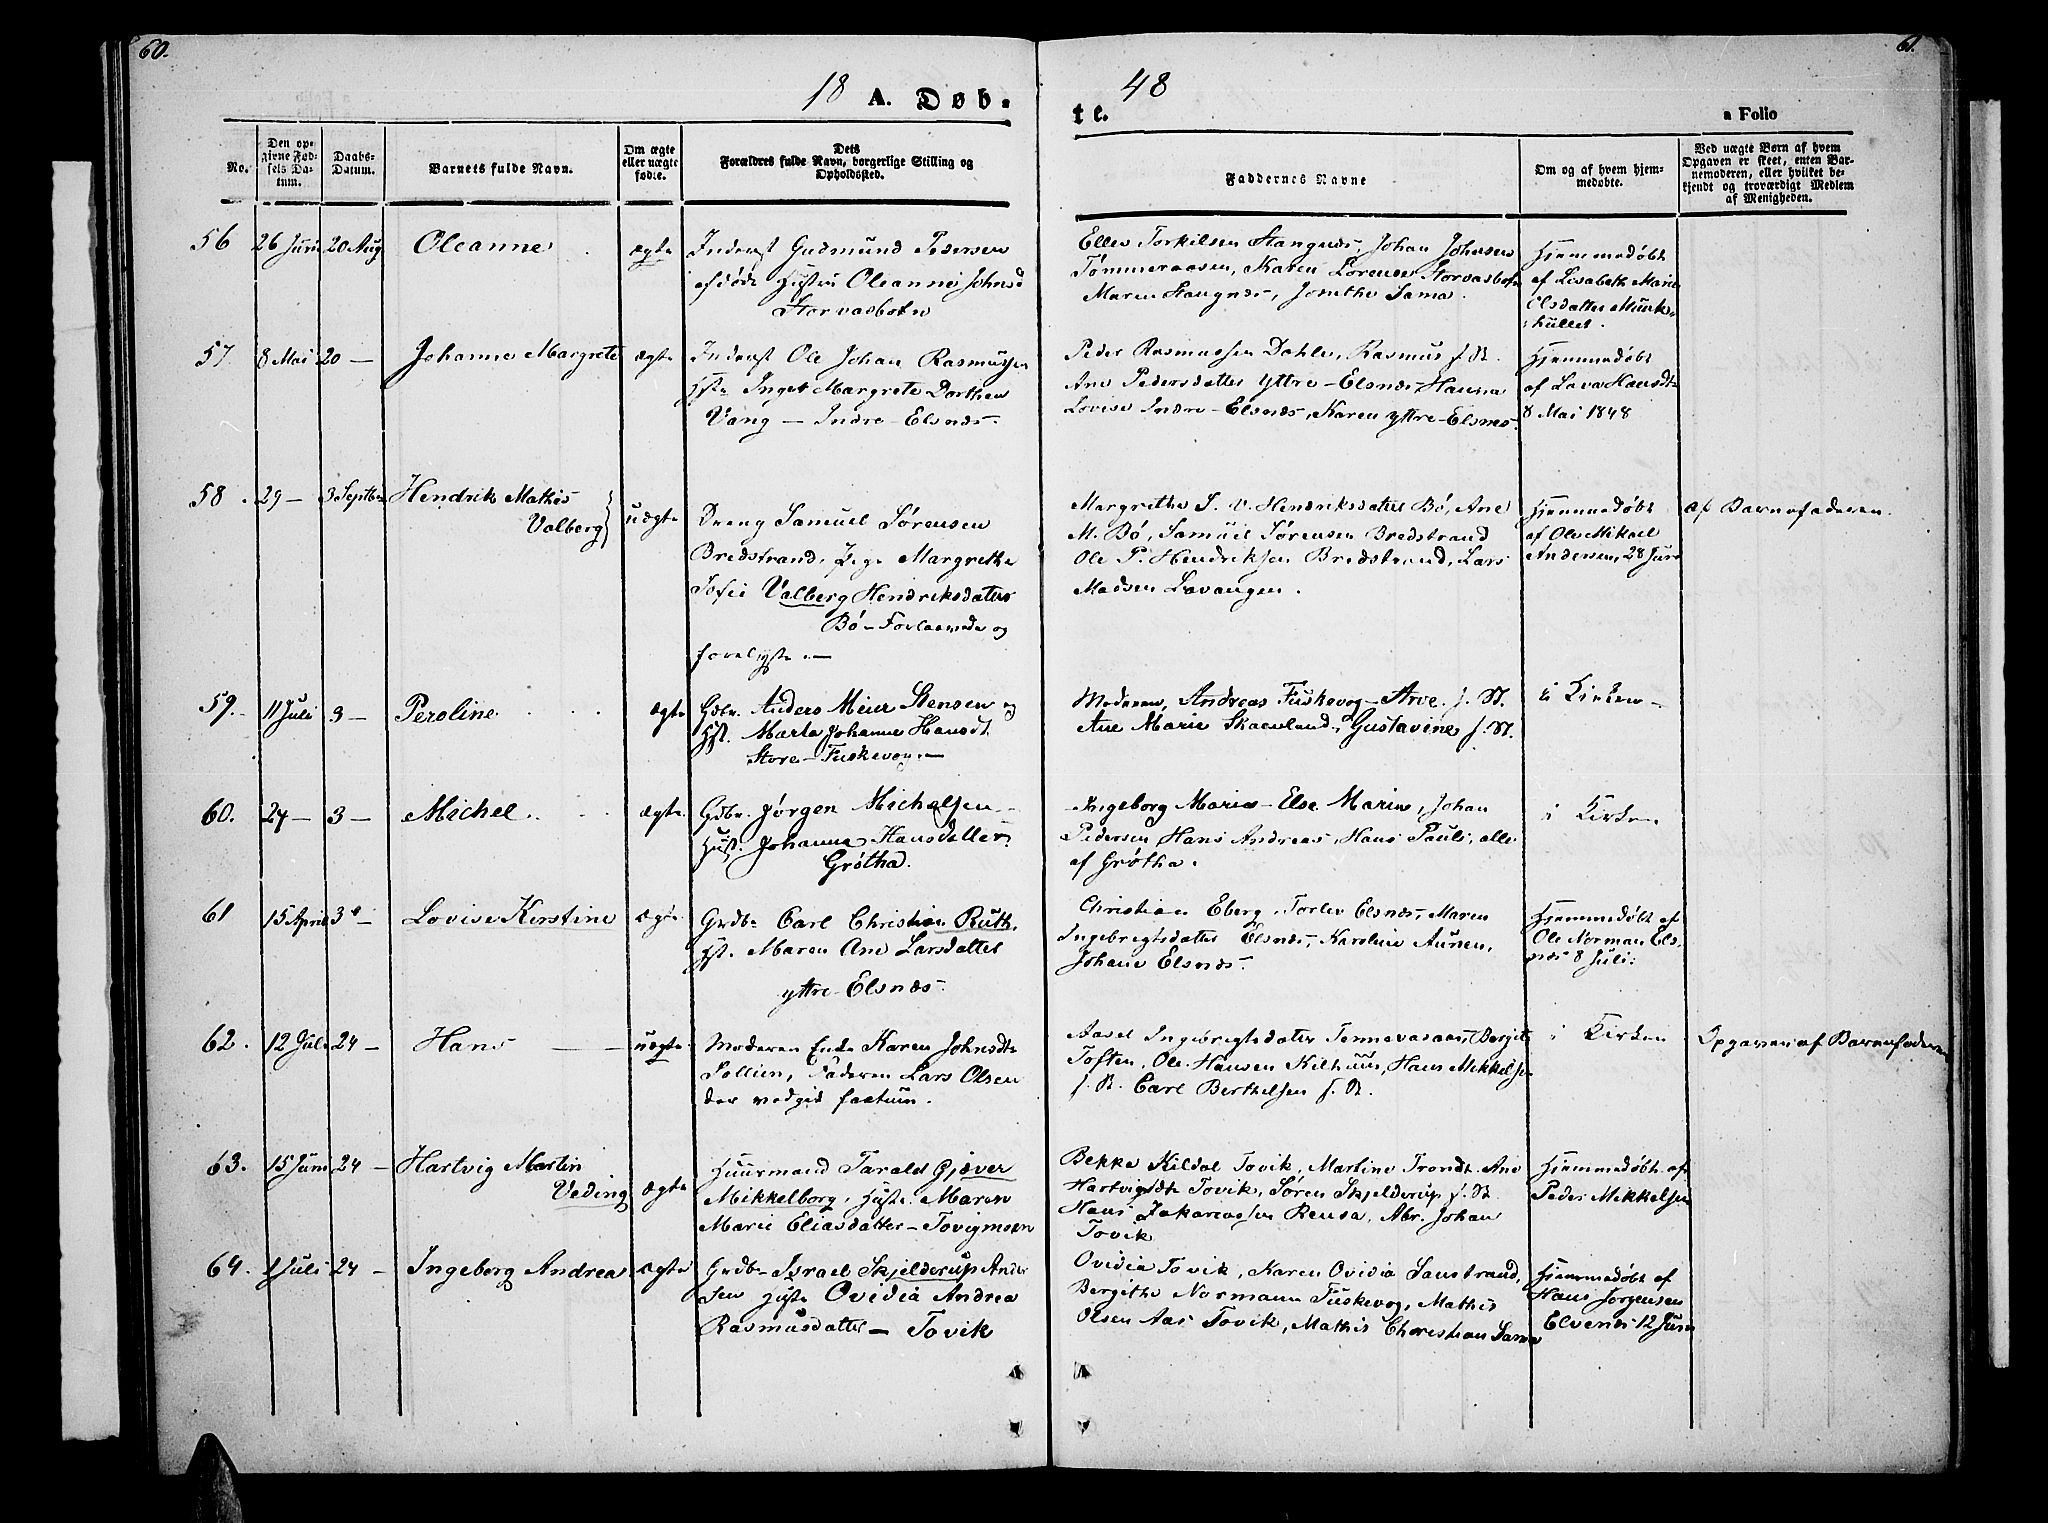 60.
61.
18 A. Døb-
te. 48
a Folio
No.
Den op-
girne Fød-
sels Da-
tum.
Daabs-
Datum.
Barnets fulde Navn.
Om ægte
eller uægte
fødte.
Dets
Forældres fulde Navn, borgerlige Stilling og
Opholdssted.
Faddernes Navne
Om og af hvem hjem-
medøbte.
Ved uægte Børn af hvem
Opgaven er skeet, enten Bar-
nemoderen, eller hvilket be-
kjendt og troværdigt Medlem
af Menigheden.
56 26 Juni 20 Aug Oleanne ægte
Inderst Gudmund Pedersen
afdøde Hustru Oleanne Johnsd
Storvasbotn
Elles Torkilsen Stangnæs, Johan Johnsen
Tømmeraasen, Karen Lorense Storvasbotn
Maren Stangnæs, Jonetha Sama.
Hjemmedøbt
af Lisabeth Marie
Olsdatter Munke-
hullet.
57. 8 Mai 20 — Johanne Margrete ægte
Inderst Ole Johan Rasmussen
Hst. Inget Margrete Dorthea
Vang — Indre-Elsnæs.
Peder Rasmussen Dahle, Rasmus f. St.
Ane Pedersdatter yttre-Elsnæs, Hanna
Lovise Indre-Elsnæs, Karen yttre-Elsnæs.
Hjemmedøbt
af Lava Hansdt
8 Mai 1848
58. 29 — 3 Septbr Hendrik Mathis
Valberg uægte
Dreng Samuel Sørensen
Bredstrand, Pige Margrethe
Sofie Valberg Hendriksdatter
Bø — Forlovede og
forelyste. —
Margrethe S. V. Hendriksdatter Bø, Ane
M. Bø, Samuel Sørensen Bredstrand
Ole P. Hendriksen Bredstrand, Lars
Madsen Lavangen.
Hjemmedøbt
af Ole Mikael
Andersen, 28 Juni
af Barnefaderen.
59. 11 Juli 3 — Peroline ægte
Gdbr. Anders Meier Stensen og
Hst. Marta Johanne Hansdt
Store-Fuskevog. —
Moderen, Andreas Fuskevog-Arve. f. St.
Ane Marie Skaenland, Gustavine f. St.
i Kirken —
60. 24 — 3 — Michel ægte.
Gdbr. Jørgen Michelsen
Hust. Johanna Hansdatter
Grøtha.
Ingeborg Maria-Else Maria, Johan
Pedersen, Hans Andreas, Hans Pauli, alle
af Grøtha.
i Kirken
61 15 April 3 — Lovise Kirstine ægte
Grdbr Carl Christian Ruth,
Hst. Maren Ane Larsdatter
yttre-Elsnæs.
Christian Eberg, Torlev Elsnæs, Maren
Ingebrigtsdatter Elsnæs, Karoline Aunen,
Johane Elsnæs.
Hjemmedøbt af
Ole Norman Els-
næs 8 Juli.
62. 12 Juli 24 — Hans uægte
Moderen Enke Karen Johnsdt
Sollien, Faderen Lars Olsen
der vedgik factum.
Aasel Ingebrigtsdatter Tennevasaas, Bergit
Toften, Ole Hansen Kilhuus, Hans Mikkelsen
f. St. Carl Berthelsen f. St.
i Kirken
Opgaven af Barnefaderen
63. 15 Juni 24 — Hartvig Martin
Veding ægte
Huurmand Tarald Gjæver
Mikkelborg, Hust. Maren
Marie Eliasdatter — Tovigmoen
Bekke Kildal Tovik, Martine Trondt. Ane
Hartvigsdt Tovik, Søren Skjelderup f. St.
Hans Zakariassen Rensa, Abr. Johan
Tovik
Hjemmedøbt af
Peder Mikkelsen
64. 1 Juli 24 — Ingeborg Andrea ægte
Grdbr Israel Skjelderup Ander
sen Hust Ovidia Andrea
Rasmusdatter — Tovik
Ovidia Tovik, Karen Ovidia Sanstrand,
Bergitha Normann Fuskevog, Mathis
Olsen Aas Tovik, Mathis Christian Sama
Hjemmedøbt af
Hans Jørgensen
Elvenes 12 Juni